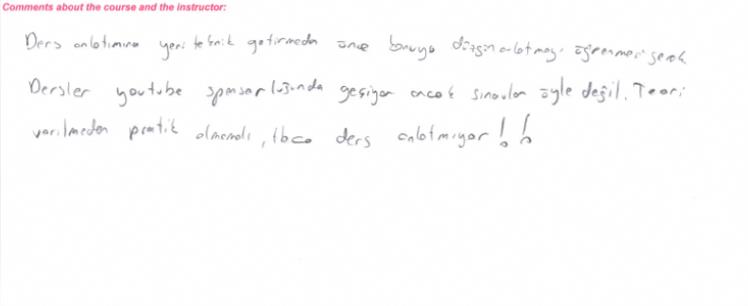 Comments about the course and the instructor:
Ders anlatımına yeni teknik getirmeden önce konuyu düzgün anlatmayı öğrenmesi gerek
Dersler youtube sponsorluğunda geçiyor ancak sınavlar öyle değil. Teori
verilmeden pratik olmamalı, ders anlatmıyor!!